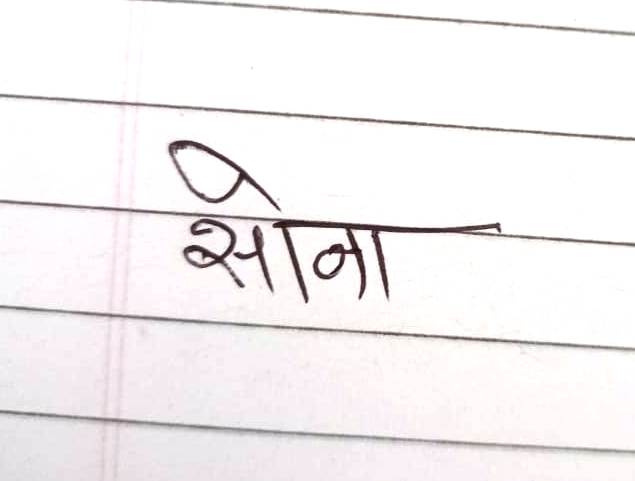 सोना